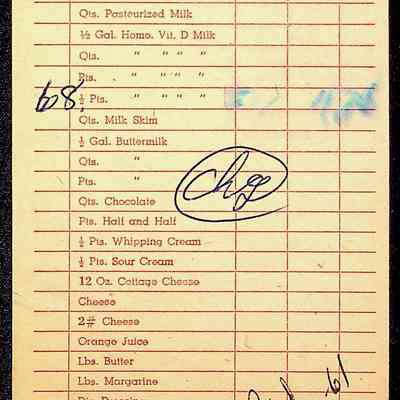 Qts. Pasteurized Milk
½ Gal. Homo. Vit. D Milk
Qts. " " " "
Pts. " " " "
68 ½ Pts. " " " "
Qts. Milk Skim
½ Gal. Buttermilk
Qts. "
Pts. "
chg
Qts. Chocolate
Pts. Half and Half
½ Pts. Whipping Cream
½ Pts. Sour Cream
12 Oz. Cottage Cheese
Cheese
2# Cheese
Orange Juice
Lbs. Butter
Lbs. Margarine